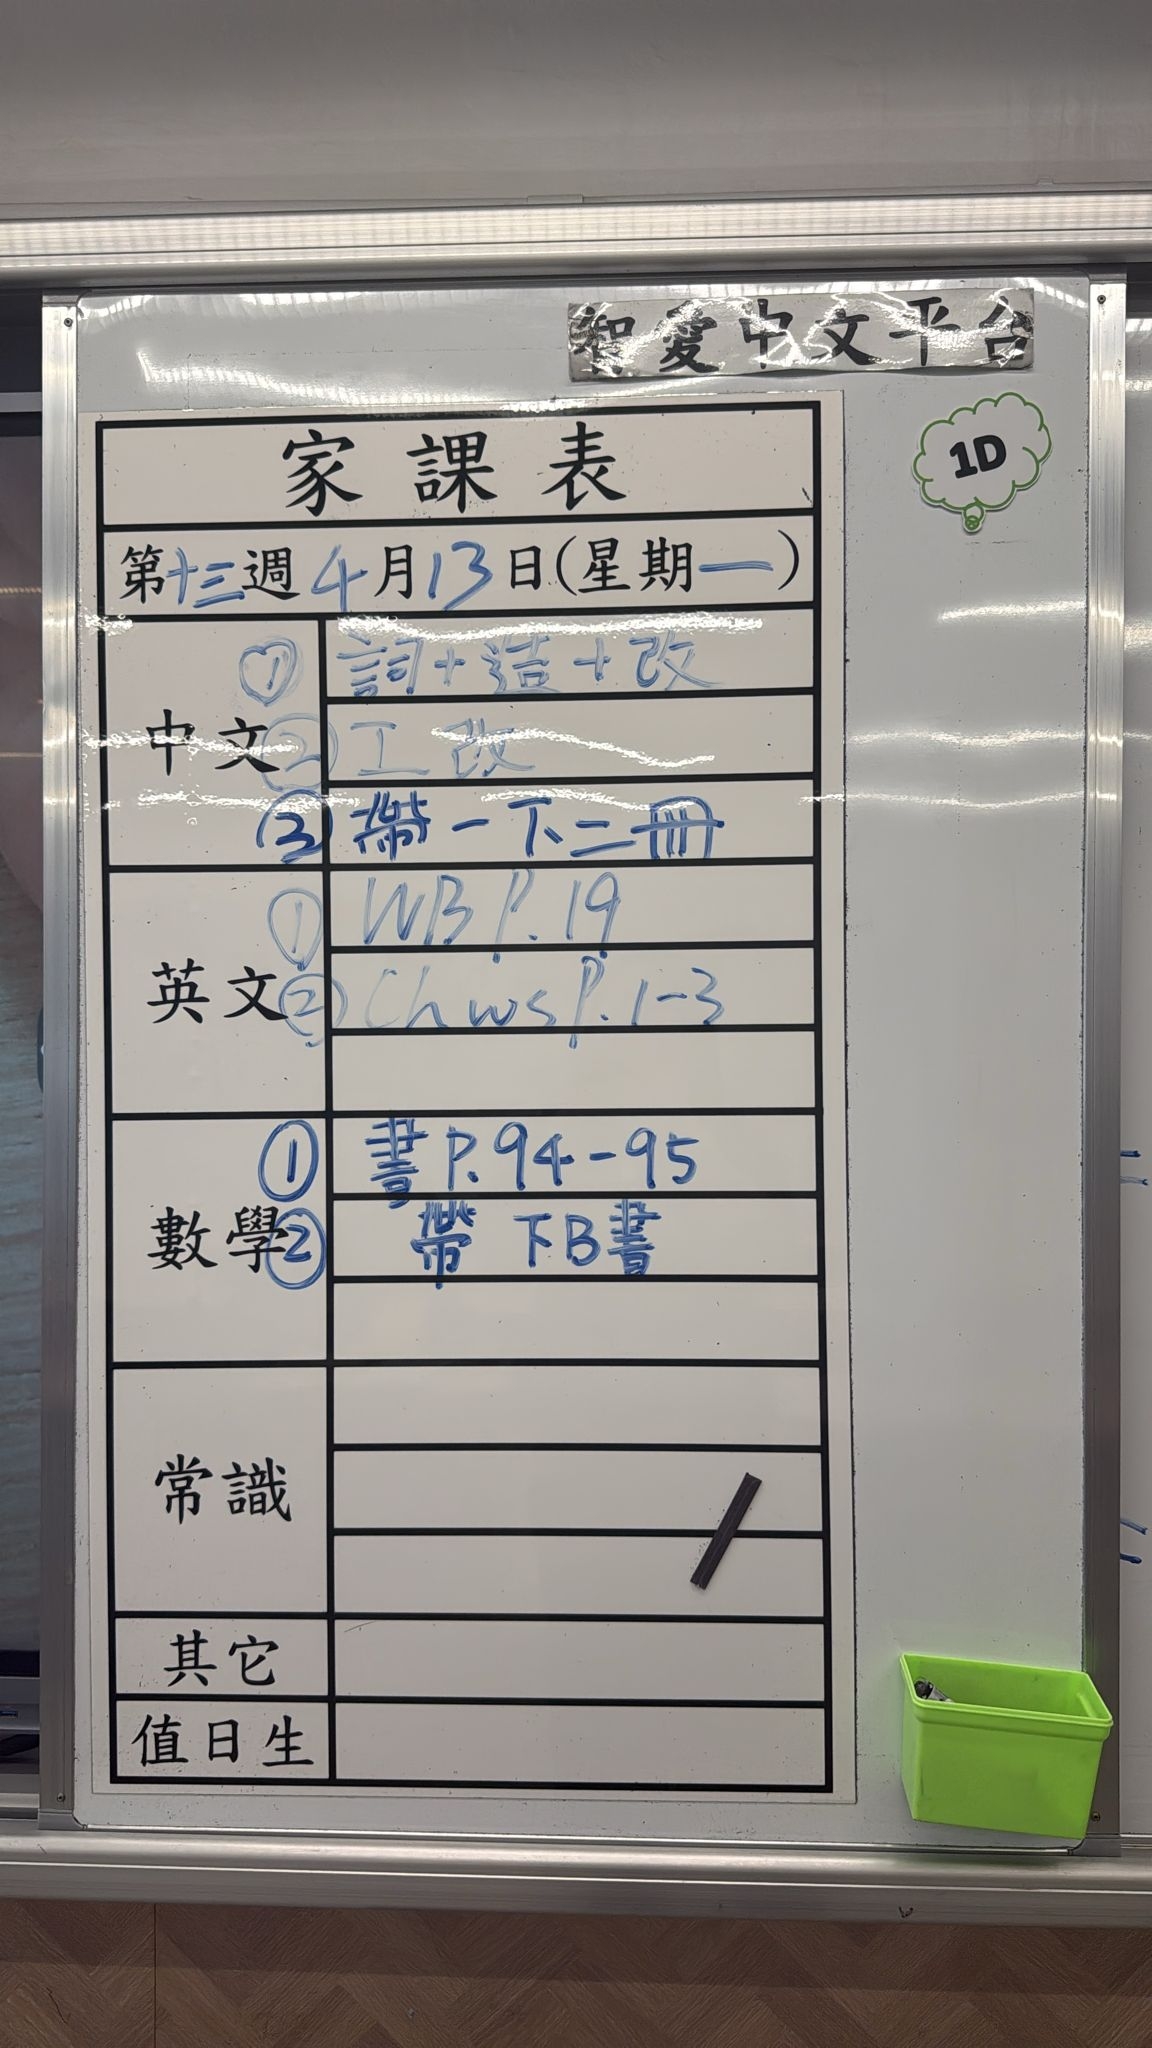 智愛中文平台
1D
家課表
第十三週4月13日(星期一)
中文
① 詞+造+改
② 工改
③ 帶一下二冊
英文
① WB P.19
② Ch ws P.1-3
數學
① 書 P.94-95
② 帶 下B書
常識
其它
值日生